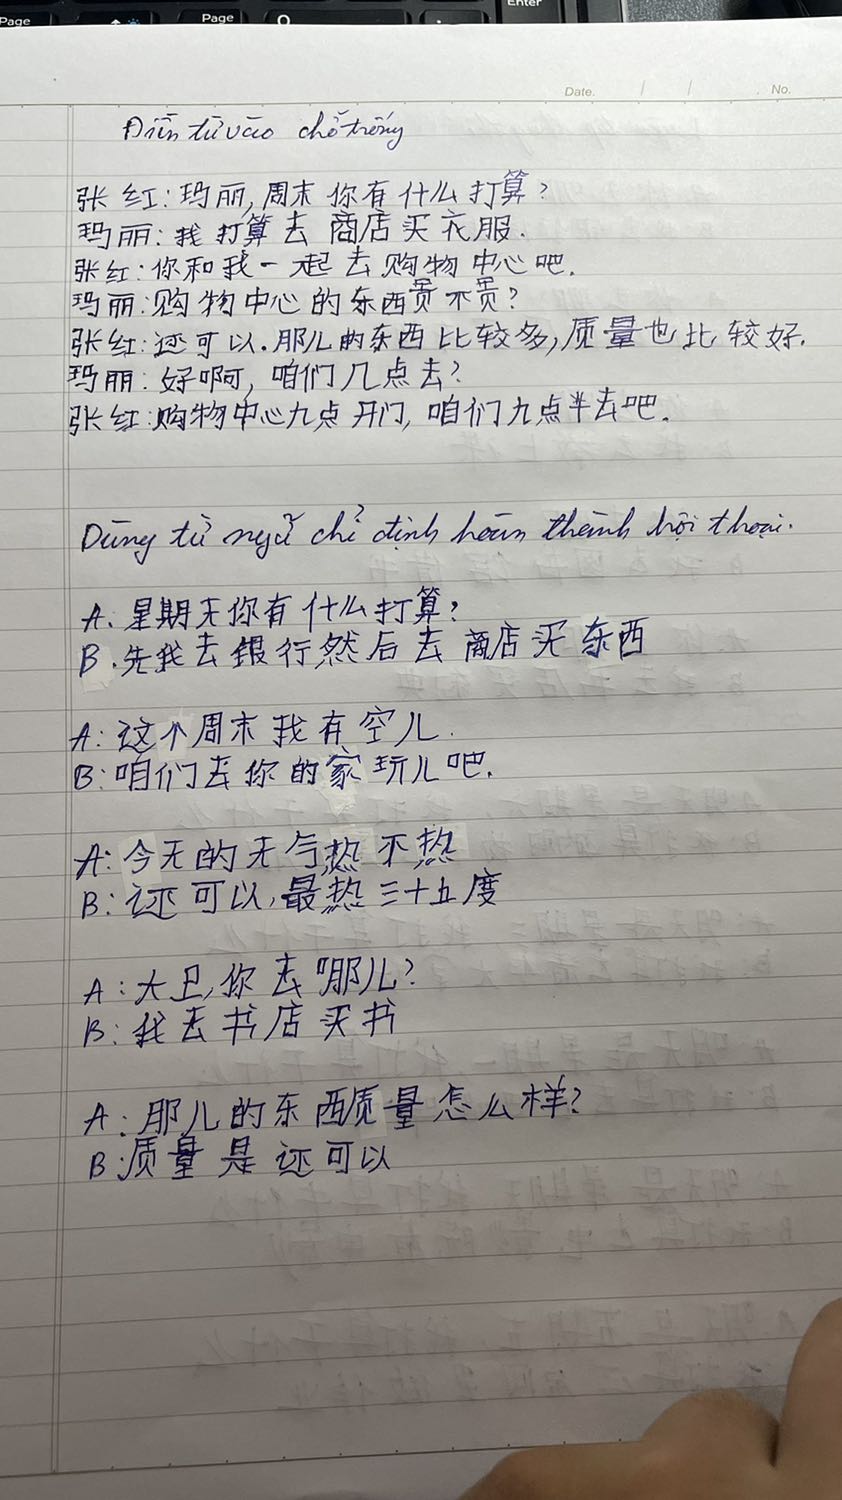 Page
Page
Enter
Date. / / . No.
Điền từ vào chỗ trống
张红:玛丽,周末你有什么打算?
玛丽:我打算去商店买衣服.
张红:你和我一起去购物中心吧.
玛丽:购物中心的东西贵不贵?
张红:还可以.那儿的东西比较多,质量也比较好.
玛丽:好啊,咱们几点去?
张红:购物中心九点开门,咱们九点半去吧.
Dùng từ ngữ chỉ định hoàn thành hội thoại.
A.星期天你有什么打算?
B.先我去银行然后去商店买东西
A:这个周末我有空儿.
B:咱们去你的家玩儿吧.
A:今天的天气热不热
B:还可以,最热三十五度
A:大卫,你去哪儿?
B:我去书店买书
A:那儿的东西质量怎么样?
B:质量是还可以